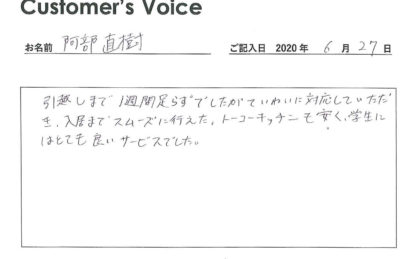 Customer's Voice
お名前 阿部 直樹 ご記入日 2020 年 6 月 27 日
引越しまで1週間足らずでしたがていねいに対応していただ
き、入居までスムーズに行えた。トーコーキッチンも安く、学生に
はとても良いサービスでした。